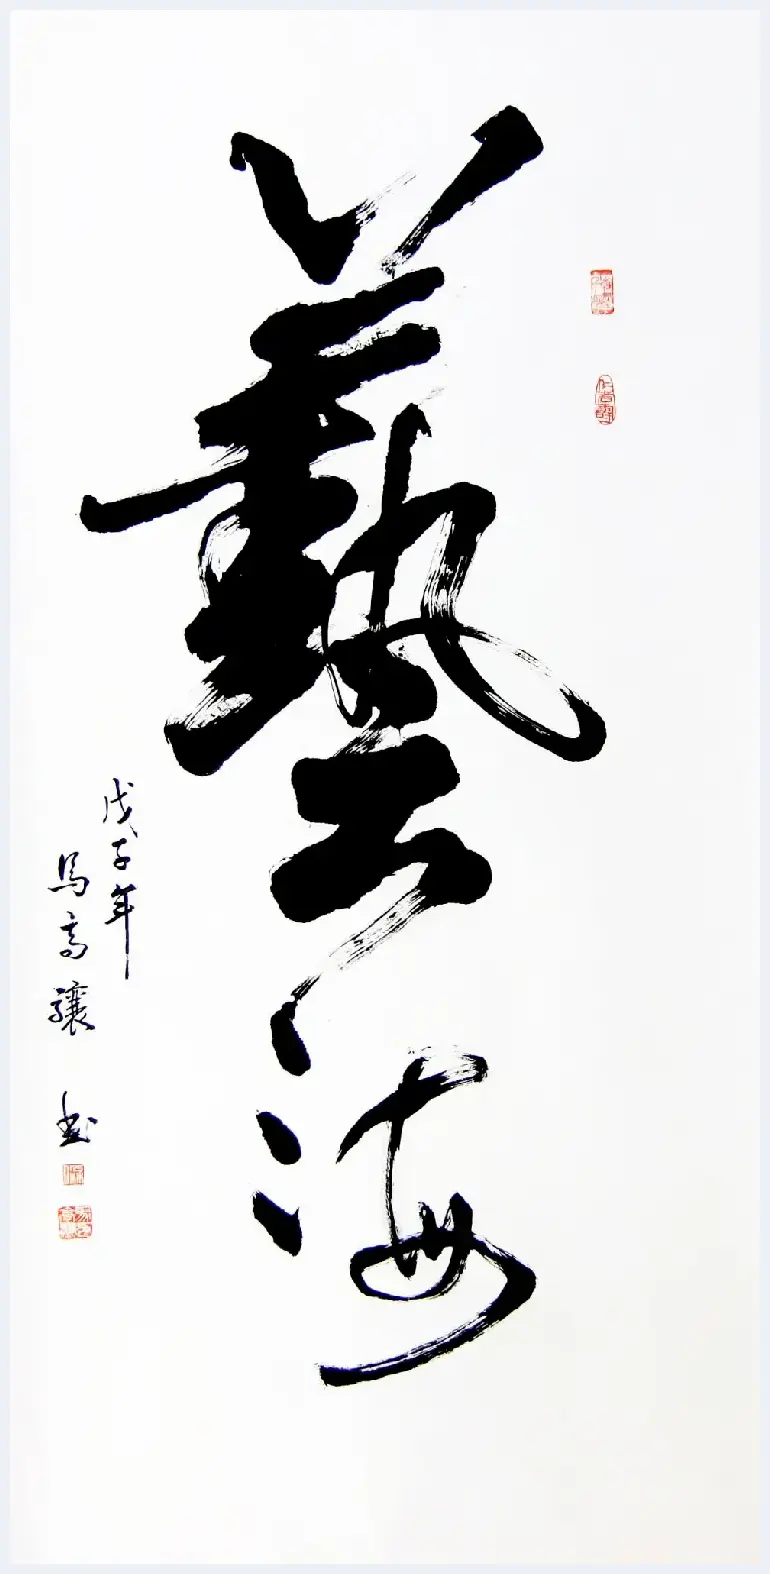 藝海
戊子年
馬高驤 书